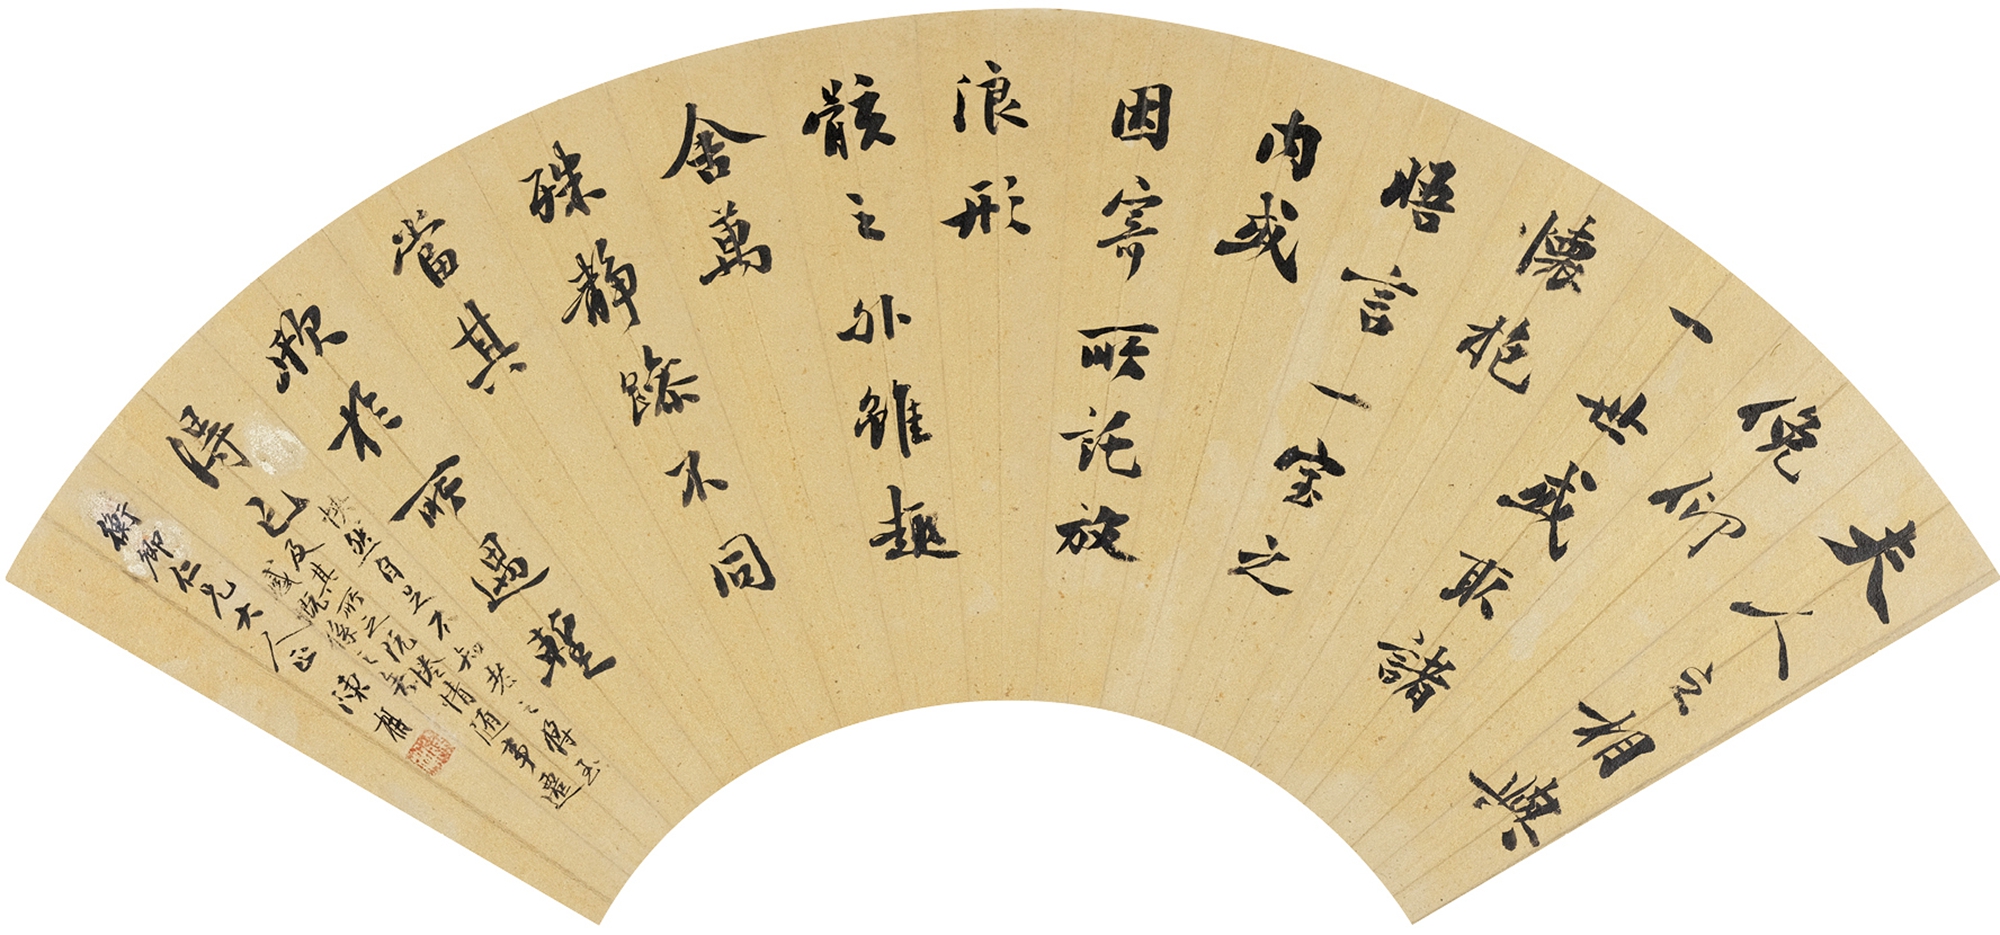 夫人之相與
俛仰
一世或取諸
懷抱
悟言一室之
內或
因寄所託放
浪形
骸之外雖趣
舍萬
殊靜躁不同
當其
欣於所遇蹔
得已
快然自足不知老之將至
及其所之既惓情隨事遷
感慨係之矣
衡卿仁兄大人正 陳